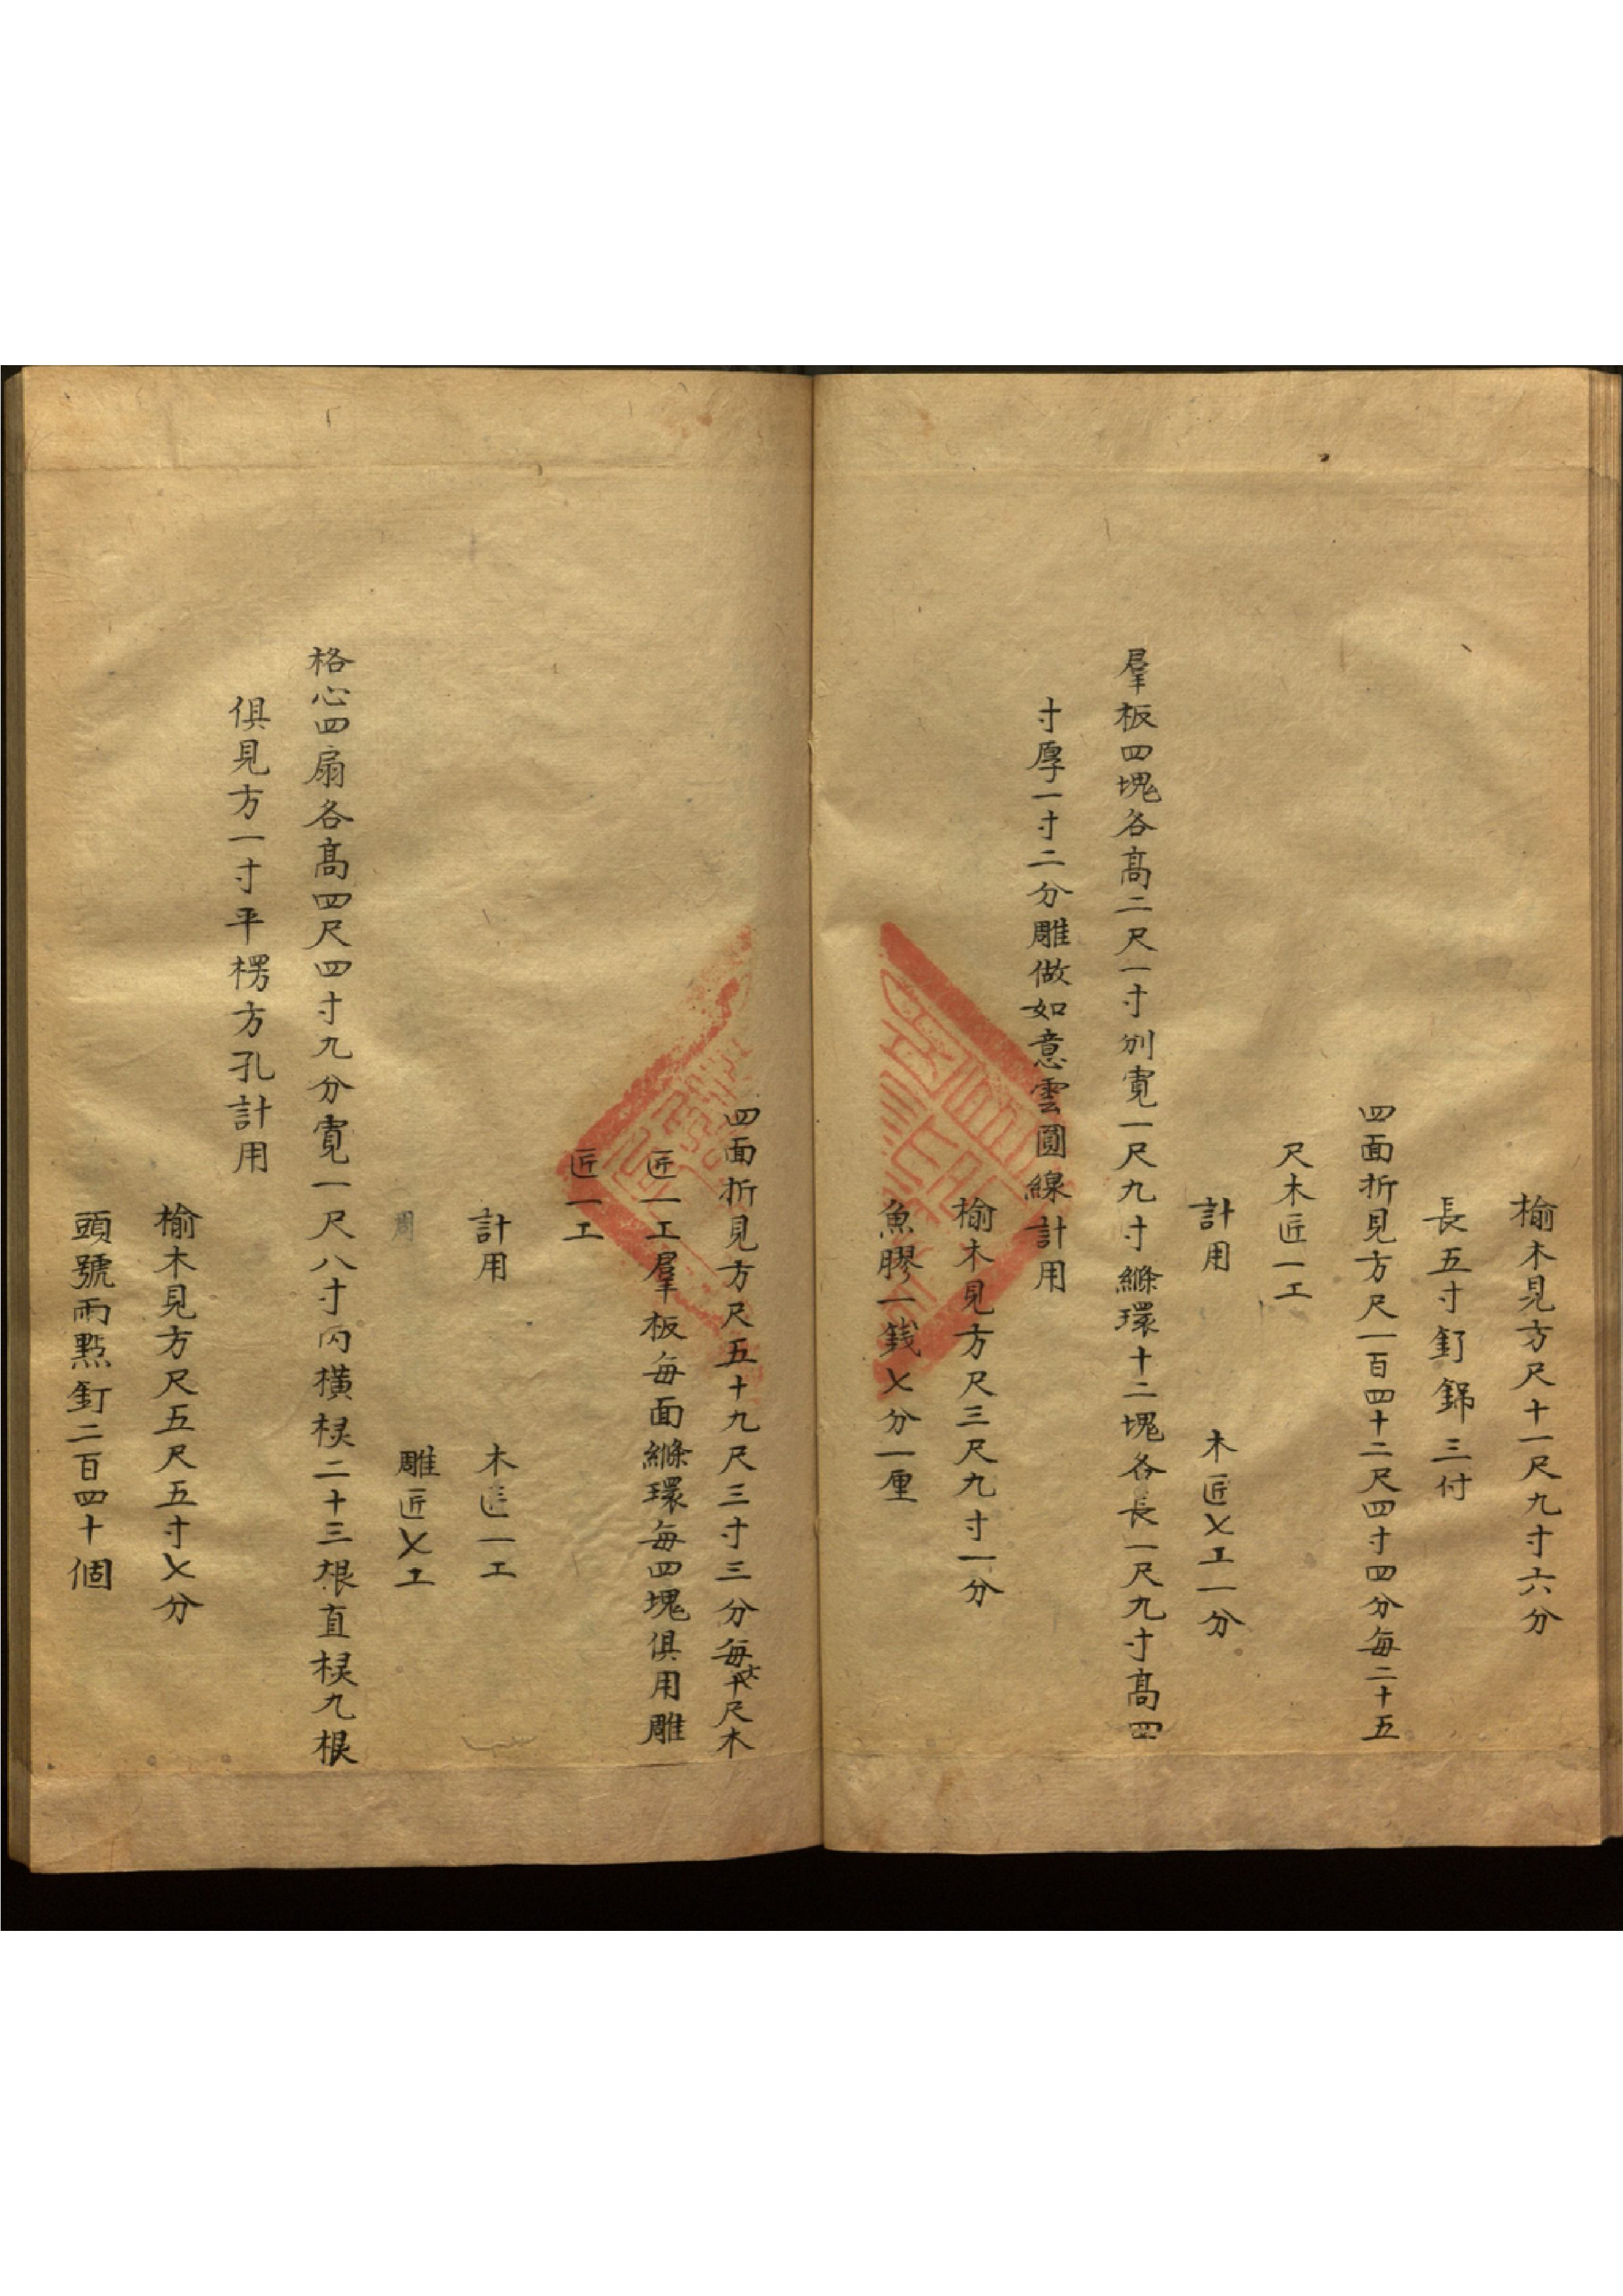 榆木見方尺十一尺九寸六分
長五寸釘錦三付
四面折見方尺一百四十二尺四寸四分每二十五
尺木匠一工
計用 木匠乄工一分
羣板四塊各高二尺一寸別寛一尺九寸縧環十二塊各長一尺九寸高四
寸厚一寸二分雕做如意雲圓線計用
榆木見方尺三尺九寸一分
魚膠一錢乄分一厘
四面折見方尺五十九尺三寸三分每尺木
匠一工羣板每面縧環每四塊俱用雕
匠一工
計用 木匠一工
雕匠乄工
格心四扇各高四尺四寸九分寛一尺八寸内橫棂二十三根直棂九根
俱見方一寸平楞方孔計用
榆木見方尺五尺五寸乄分
頭號雨點釘二百四十個